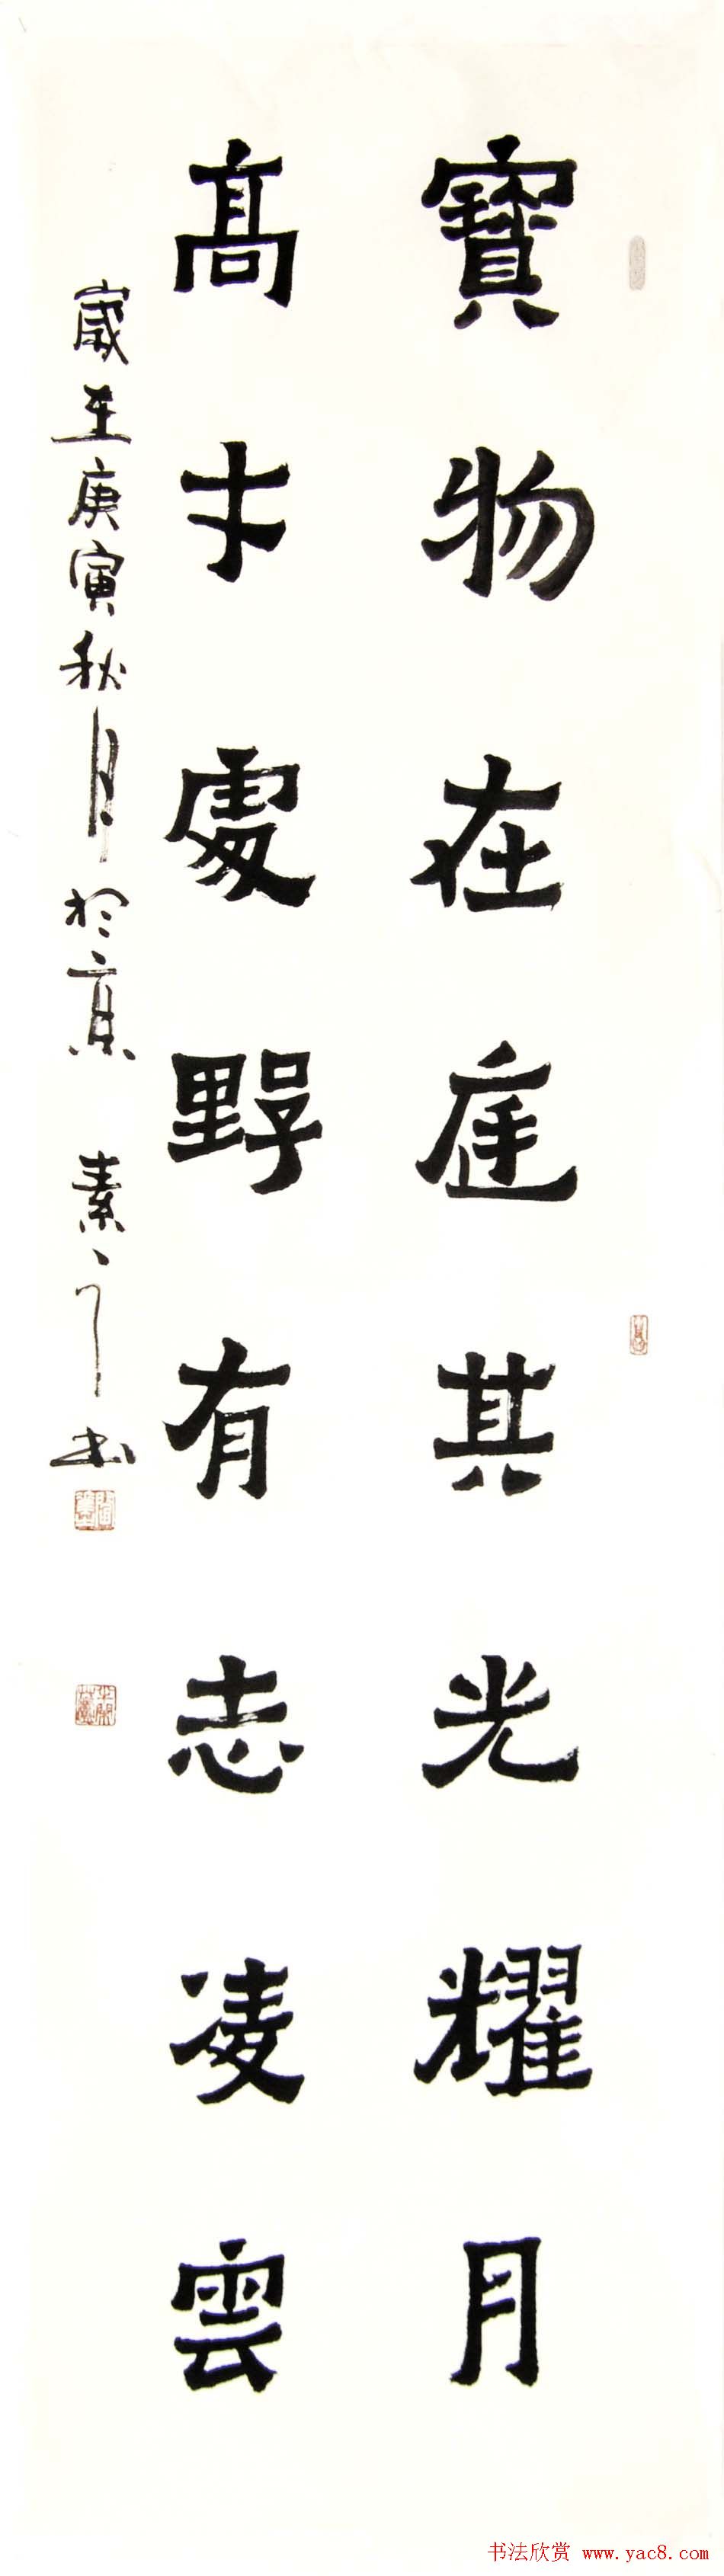 寶物在庭其光耀月
髙才處野有志凌雲
歲在庚寅秋月於京 素
书法欣赏 www.yac8.com